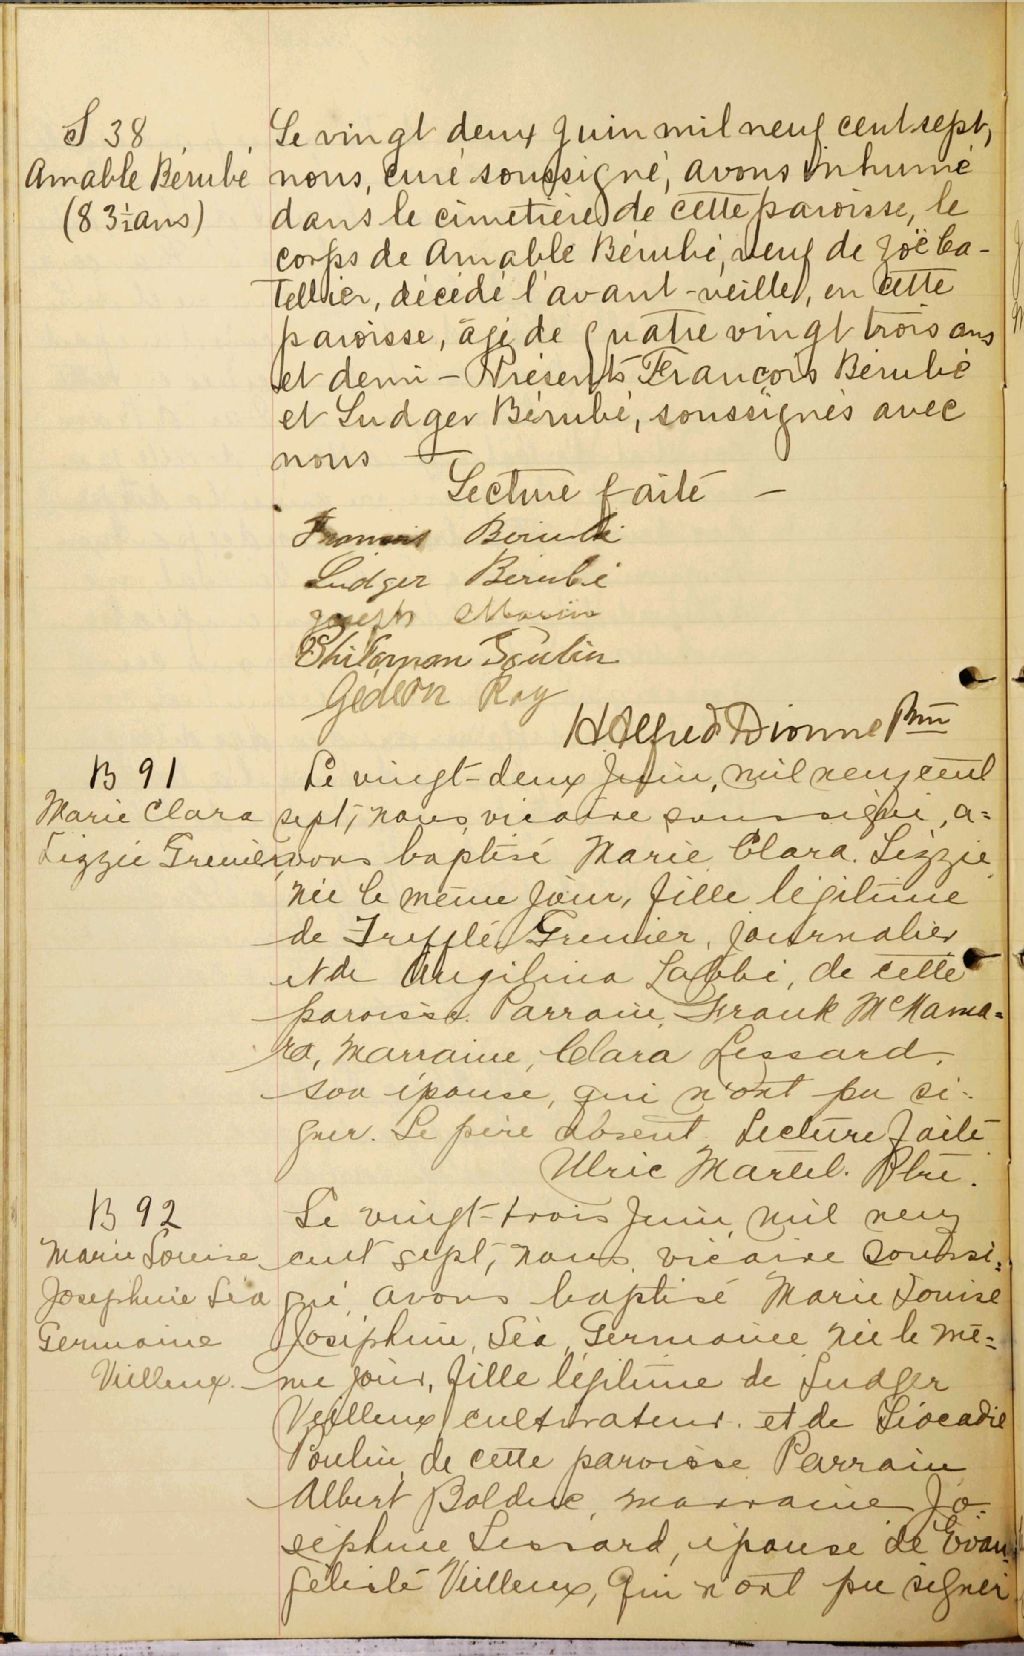 S 38
Amable Bérubé
(83½ ans)
Le vingt deux Juin mil neuf cent sept,
nous, curé soussigné, avons inhumé
dans le cimetière de cette paroisse, le
corps de Amable Bérubé, veuf de Zoë Ca-
tellier, décédé l'avant-veille, en cette
paroisse, âgé de quatre vingt trois ans
et demi - Présents François Bérubé
et Ludger Bérubé, soussignés avec
nous —
Lecture faite —
François Bérubé
Ludger Bérubé
Joseph
Philémon Poulin
Gédéon Roy
H Alfred Dionne Ptre
B 91
Marie Clara
Lizzie Grenier
Le vingt-deux Juin, mil neuf cent
sept, nous, vicaire soussigné, a=
vons baptisé Marie Clara. Lizzie,
née le même jour, fille légitime
de Treffié Grenier, journalier
et de Angélina Labbé, de cette
paroisse. Parrain, Frank McNama=
ra, Marraine, Clara Lessard,
son épouse, qui n'ont pu si-
gner. Le père absent. Lecture faite
Ulric Martel. Ptre.
B 92
Marie Louise
Josephine Léa
Germaine
Veilleux.
Le vingt-trois Juin, mil neuf
cent sept, nous, vicaire soussi=
gné, avons baptisé Marie Louise
Joséphine, Léa, Germaine née le mê=
me jour, fille légitime de Ludger
Veilleux cultivateur. et de Léocadie
Poulin, de cette paroisse Parrain
Albert Bolduc, marraine Jo-
séphine Lessard, épouse de Évan
géliste Veilleux, qui n'ont pu signer